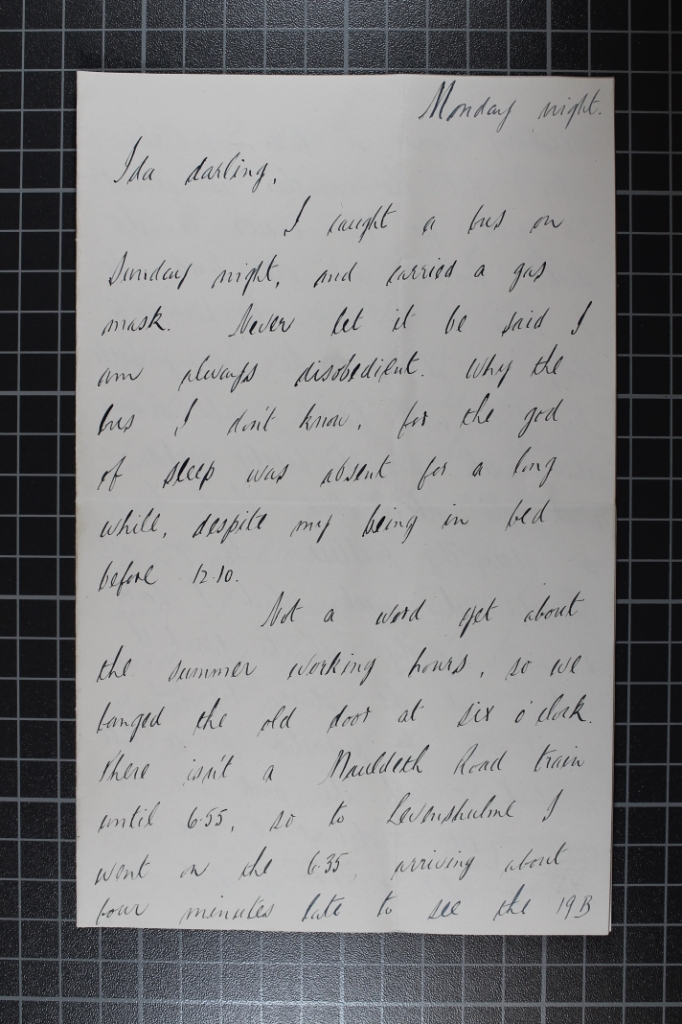 Monday night.
Ida darling,
I caught a bus on
Sunday night, and carried a gas
mask. Never let it be said I
am always disobedient. Why the
bus I don't know, for the god
of sleep was absent for a long
while, despite my being in bed
before 12.10.
Not a word yet about
the summer working hours, so we
banged the old door at six o'clock.
There isn't a Mauldeth Road train
until 6.55, so to Levenshulme I
went on the 6.35, arriving about
four minutes late to see the 19B